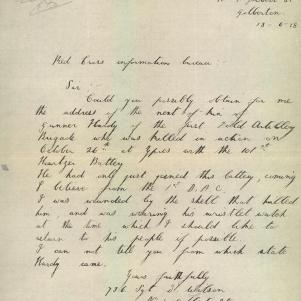 Gilberton.
13-6-18
Red Cross information bureau:—
Sir
Could you possibly obtain for me
the address of the next of kin of
Gunner Hardy of the first Field Artillery
Brigade who was killed in action on
October 26th at Ypres with the 101st
Howitzer Battery
He had only just joined this battery, coming
I believe from the 1st D.A.C.
I was wounded by the shell that killed
him, and was wearing his wristlet watch
at the time which I should like to
return to his people if possible
I can not tell you from which state
Hardy came.
Yours faithfully
736 Sgt Watson